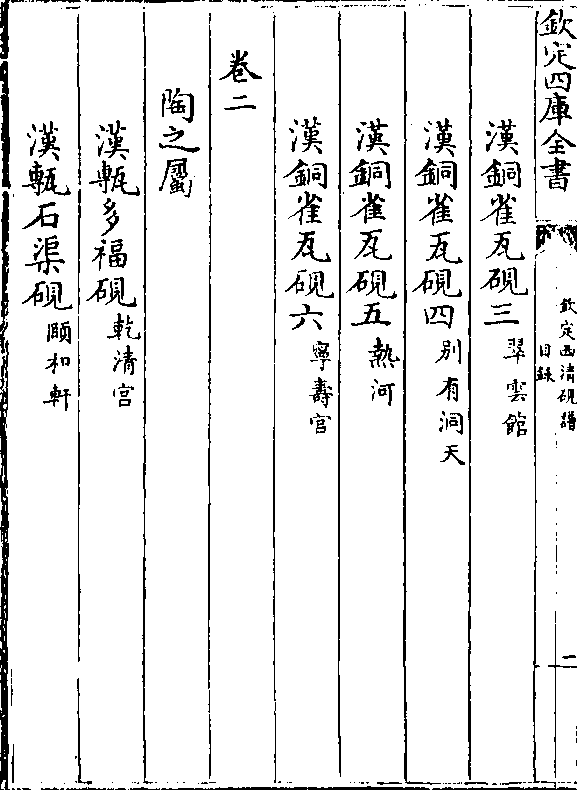 欽定四庫全書
欽定西清硯譜
目錄
二
漢銅雀瓦硯三 翠雲館
漢銅雀瓦硯四 别有洞天
漢銅雀瓦硯五 熱河
漢銅雀瓦硯六 寧壽宫
卷二
陶之屬
漢甎多福硯 乾清宫
漢甎石渠硯 頤和軒